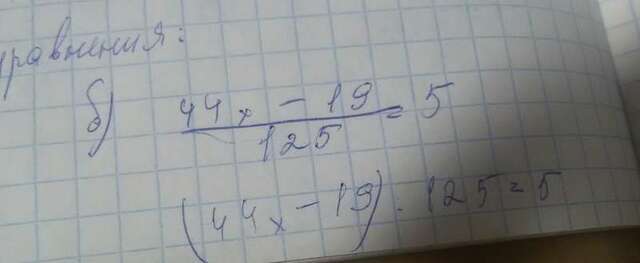 уравнения:
б) 44x - 19 = 5
125
(44x - 19) · 125 = 5